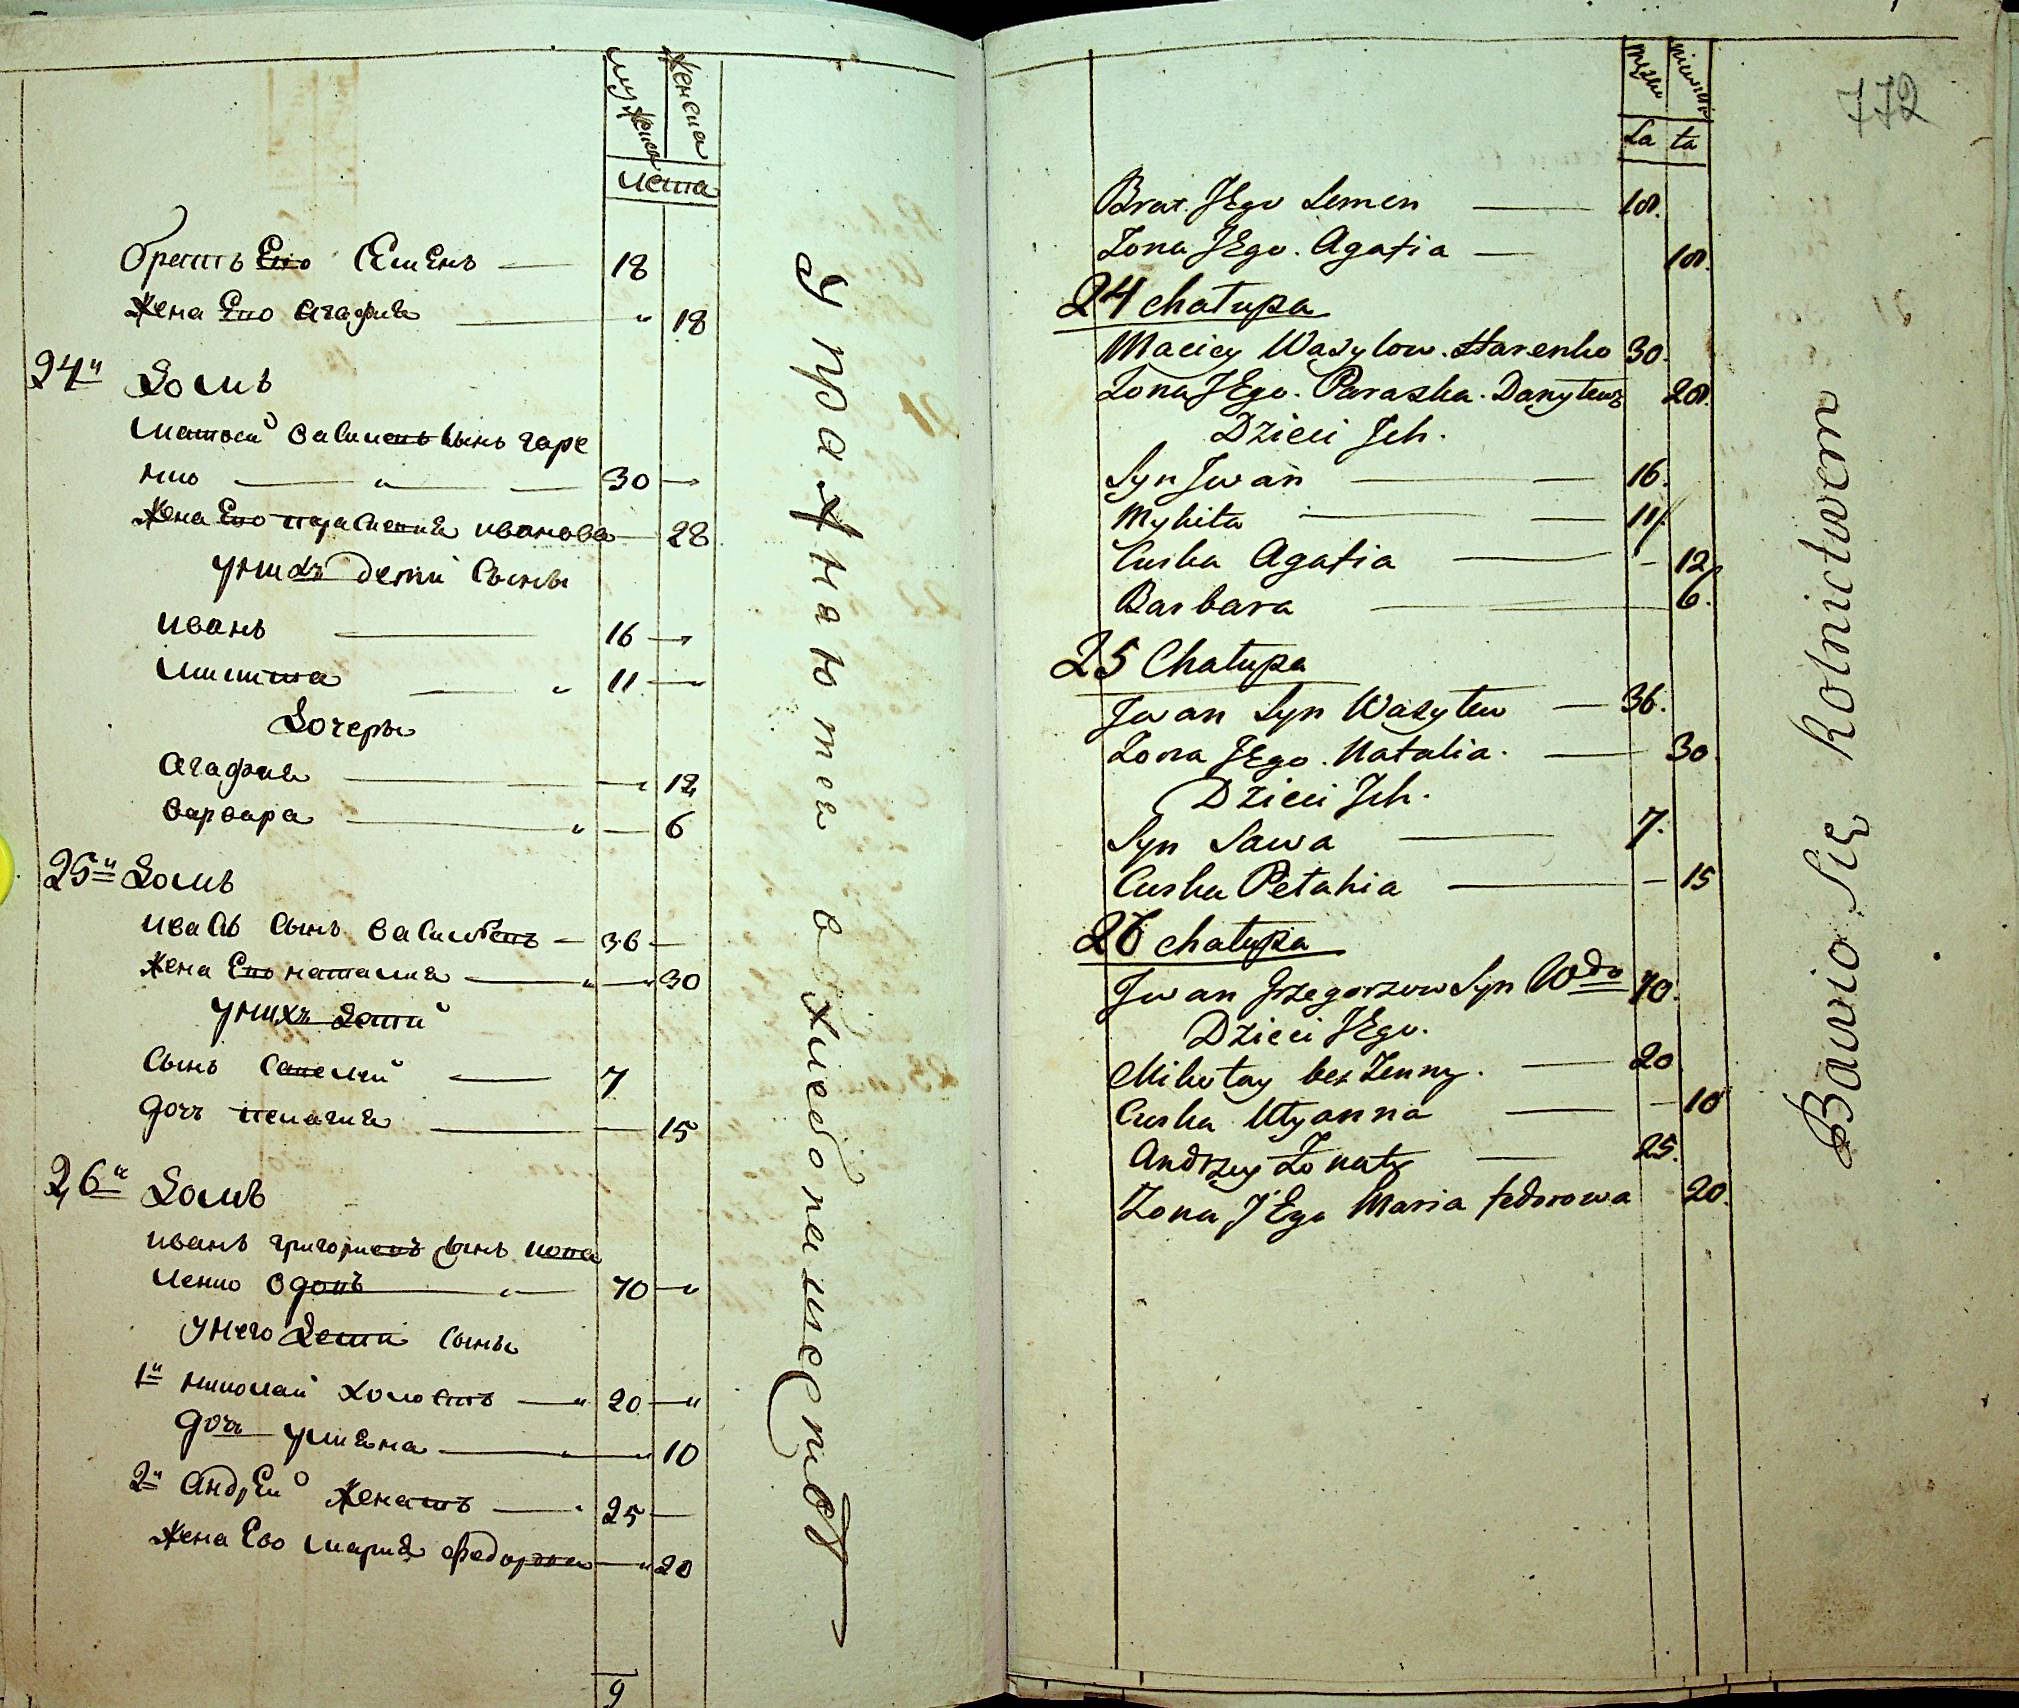 мужеска
женска
лета
братъ Его Семенъ 18
жена Его Агафия " 18
24й домъ
Матвей Василевъ Сынъ гаре
нко " 30
Жена Его параскевия иванова 28
у нихъ дети Сыны
иванъ 16
Микита " 11
дочеры
Агафия 12
варвара " 6
25й домъ
иванъ Сынъ василевъ 36
жена Его наталия " 30
у нихъ дети
Сынъ Савелий 7
дочь пелагия 15
26й домъ
иванъ григориевъ Сынъ
ленко вдовъ " 70
у него дети Сыны
1й николай холостъ " 20 "
дочь улиана " 10
2й Андрей женатъ 25
жена Ево мария федорова " 20
9
упражнаются в хлебопашестве
772
Męzka
Niewiescia
La ta
Brat JEgo Semen 18.
Zona JEgo. Agafia 18.
24 chatupa
Maciey Wasylow. Harenko 30.
Zona JEgo. Paraska. Danylewa 28.
Dzieci Jch.
Syn Jwan 16.
Mykita 11
Curka Agafia 12
Barbara 6.
25 Chatupa
Jwan Syn Wasylew 36.
Zona JEgo. Natalia. 30.
Dzieci Jch.
Syn Sawa 7.
Curka Petahia 15
26 chatupa
Jwan Grzegorzow Syn Wdo 70.
Dzieci JEgo.
Mikołay bez Zenny. 20
Curka Ulyanna 10
Andrzey Zonaty 25.
Zona JEgo Maria fedorowa 20.
Bawio Się Rolnictwem